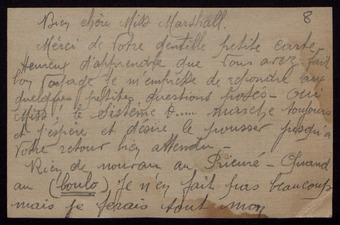 8
Bien chère Miss Marshall.
Merci de votre gentille petite carte
Heureux d'apprendre que vous avez fait
bon voyage Je m'empresse de repondre aux
quelques petites questions posés - Oui
Miss! le Sisteme D..... marche toujours
et j'espère et désire le pousser jusqu'à
votre retour
Rien de nouveau au Prieuré - Quand
au (boulo) Je n'en fait pas beaucoup
mais je ferais tout mon